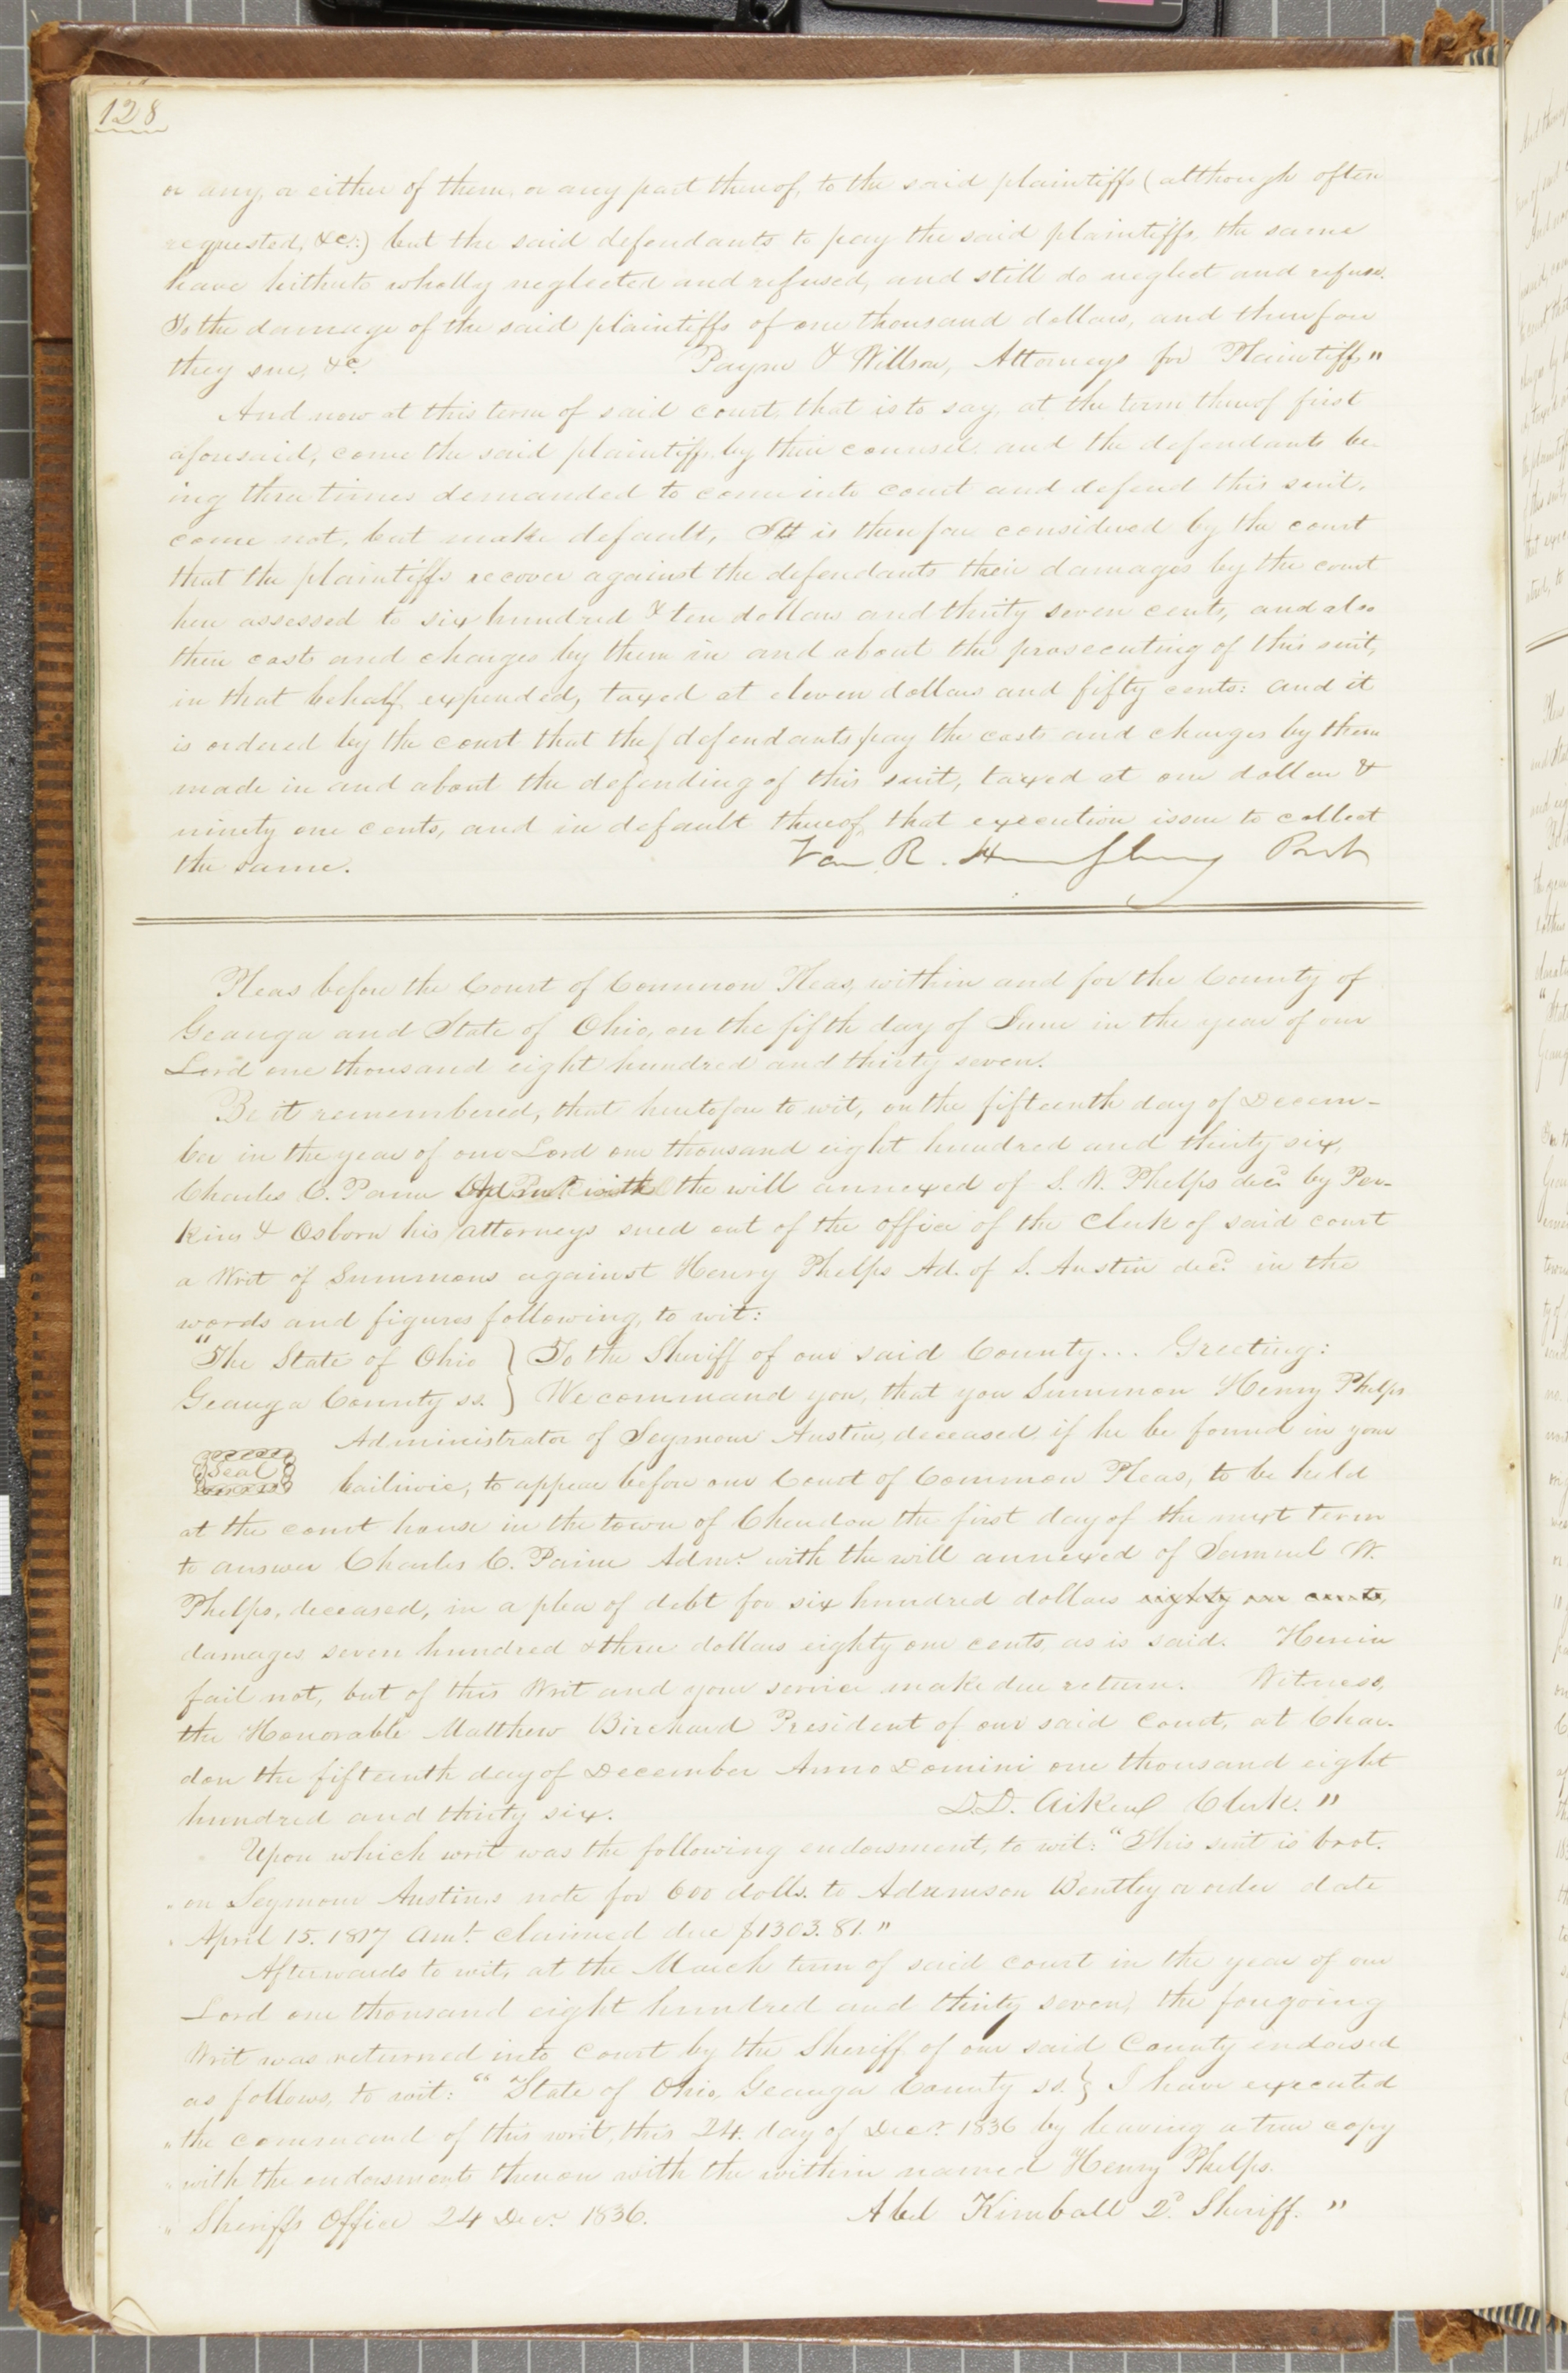 128
or any, or either of them, or any part thereof, to the said plaintiffs (although often
requested, &c.:) but the said defendants to pay the said plaintiffs, the same
have hitherto wholly neglected and refused, and still do neglect and refuse.
To the damage of the said plaintiffs of one thousand dollars, and therefore
they sue, &c. Payne & Willson, Attorneys for Plaintiffs"
And now at this term of said court, that is to say, at the term thereof first
aforesaid, come the said plaintiffs, by their counsel, and the defendants be-
ing three times demanded to come into court and defend this suit,
come not, but make default, It is therefore considered by the court
that the plaintiffs recover against the defendants their damages by the court
here assessed to six hundred & ten dollars and thirty seven cents, and also
their costs and charges by them in and about the prosecuting of this suit,
in that behalf expended, taxed at eleven dollars and fifty cents: and it
is ordered by the court that the defendants pay the costs and charges by them
made in and about the defending of this suit, taxed at one dollar &
ninety one cents, and in default thereof, that execution issue to collect
the same. Van R. Humphrey Prest
Pleas before the Court of Common Pleas, within and for the County of
Geauga and State of Ohio, on the fifth day of June in the year of our
Lord one thousand eight hundred and thirty seven.
Be it remembered, that heretofore to wit, on the fifteenth day of Decem-
ber in the year of our Lord one thousand eight hundred and thirty six,
Charles C. Paine with the will annexed of S. W. Phelps decd. by Per-
kins & Osborn his attorneys sued out of the office of the Clerk of said court
a Writ of Summons against Henry Phelps Ad. of S. Austin decd. in the
words and figures following, to wit:
"The State of Ohio } To the Sheriff of our said County... Greeting:
Geauga County ss. } We command you, that you Summon Henry Phelps
Administrator of Seymour Austin, deceased if he be found in your
Seal bailiwic, to appear before our Court of Common Pleas, to be held
at the court house in the town of Chardon the first day of the next term
to answer Charles C. Paine Admr. with the will annexed of Samuel W.
Phelps, deceased, in a plea of debt for six hundred dollars eighty one cents,
damages seven hundred & three dollars eighty one cents, as is said. Herein
fail not, but of this Writ and your service make due return. Witness,
the Honorable Matthew Birchard President of our said Court, at Char-
don the fifteenth day of December Anno Domini one thousand eight
hundred and thirty six. D.D. Aiken Clerk."
Upon which writ was the following endorsment, to wit: "This suit is brot.
" on Seymour Austin,s note for 600 dolls. to Adamson Bentley or order date
" April 15. 1817 Amt. claimed due $1303.81."
Afterwards to wit, at the March term of said court in the year of our
Lord one thousand eight hundred and thirty seven, the foregoing
Writ was returned into Court by the Sheriff of our said County endorsed
as follows, to wit: "State of Ohio, Geauga County ss.} I have executed
" the command of this writ, this 24. day of Decr. 1836 by leaving a true copy
" with the endorsments thereon with the within named Henry Phelps.
" Sheriffs Office 24 Decr. 1836. Abel Kimball D. Sheriff."